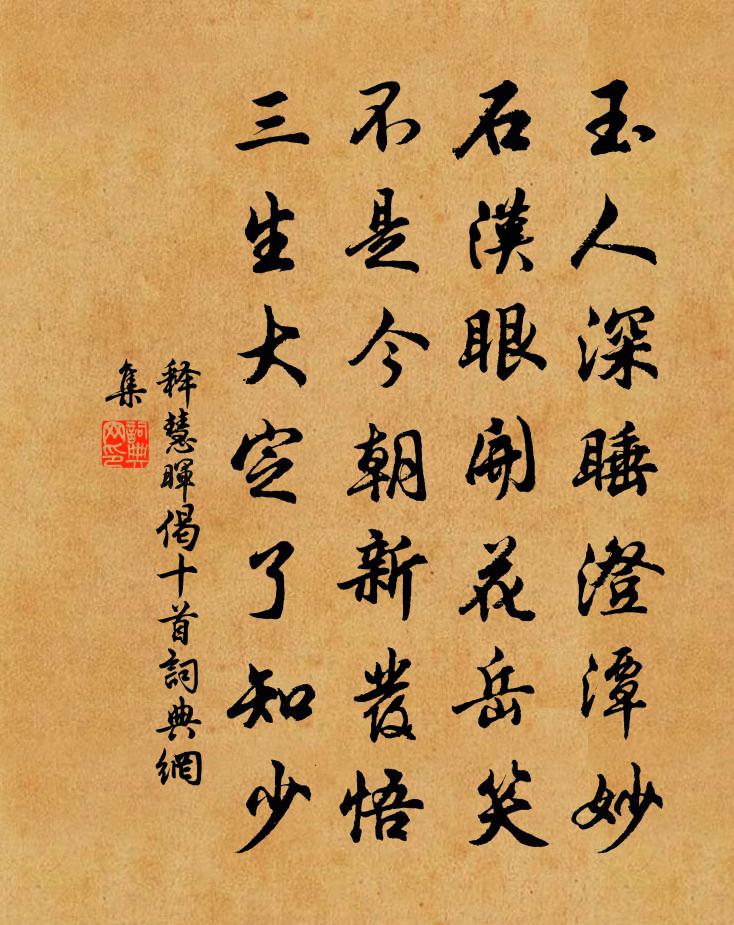 玉人深睡澄潭妙
石漢眼開花岳笑
不是今朝新發悟
三生大定了知少
释慧暉偈十首詞典網
集
詞典網印